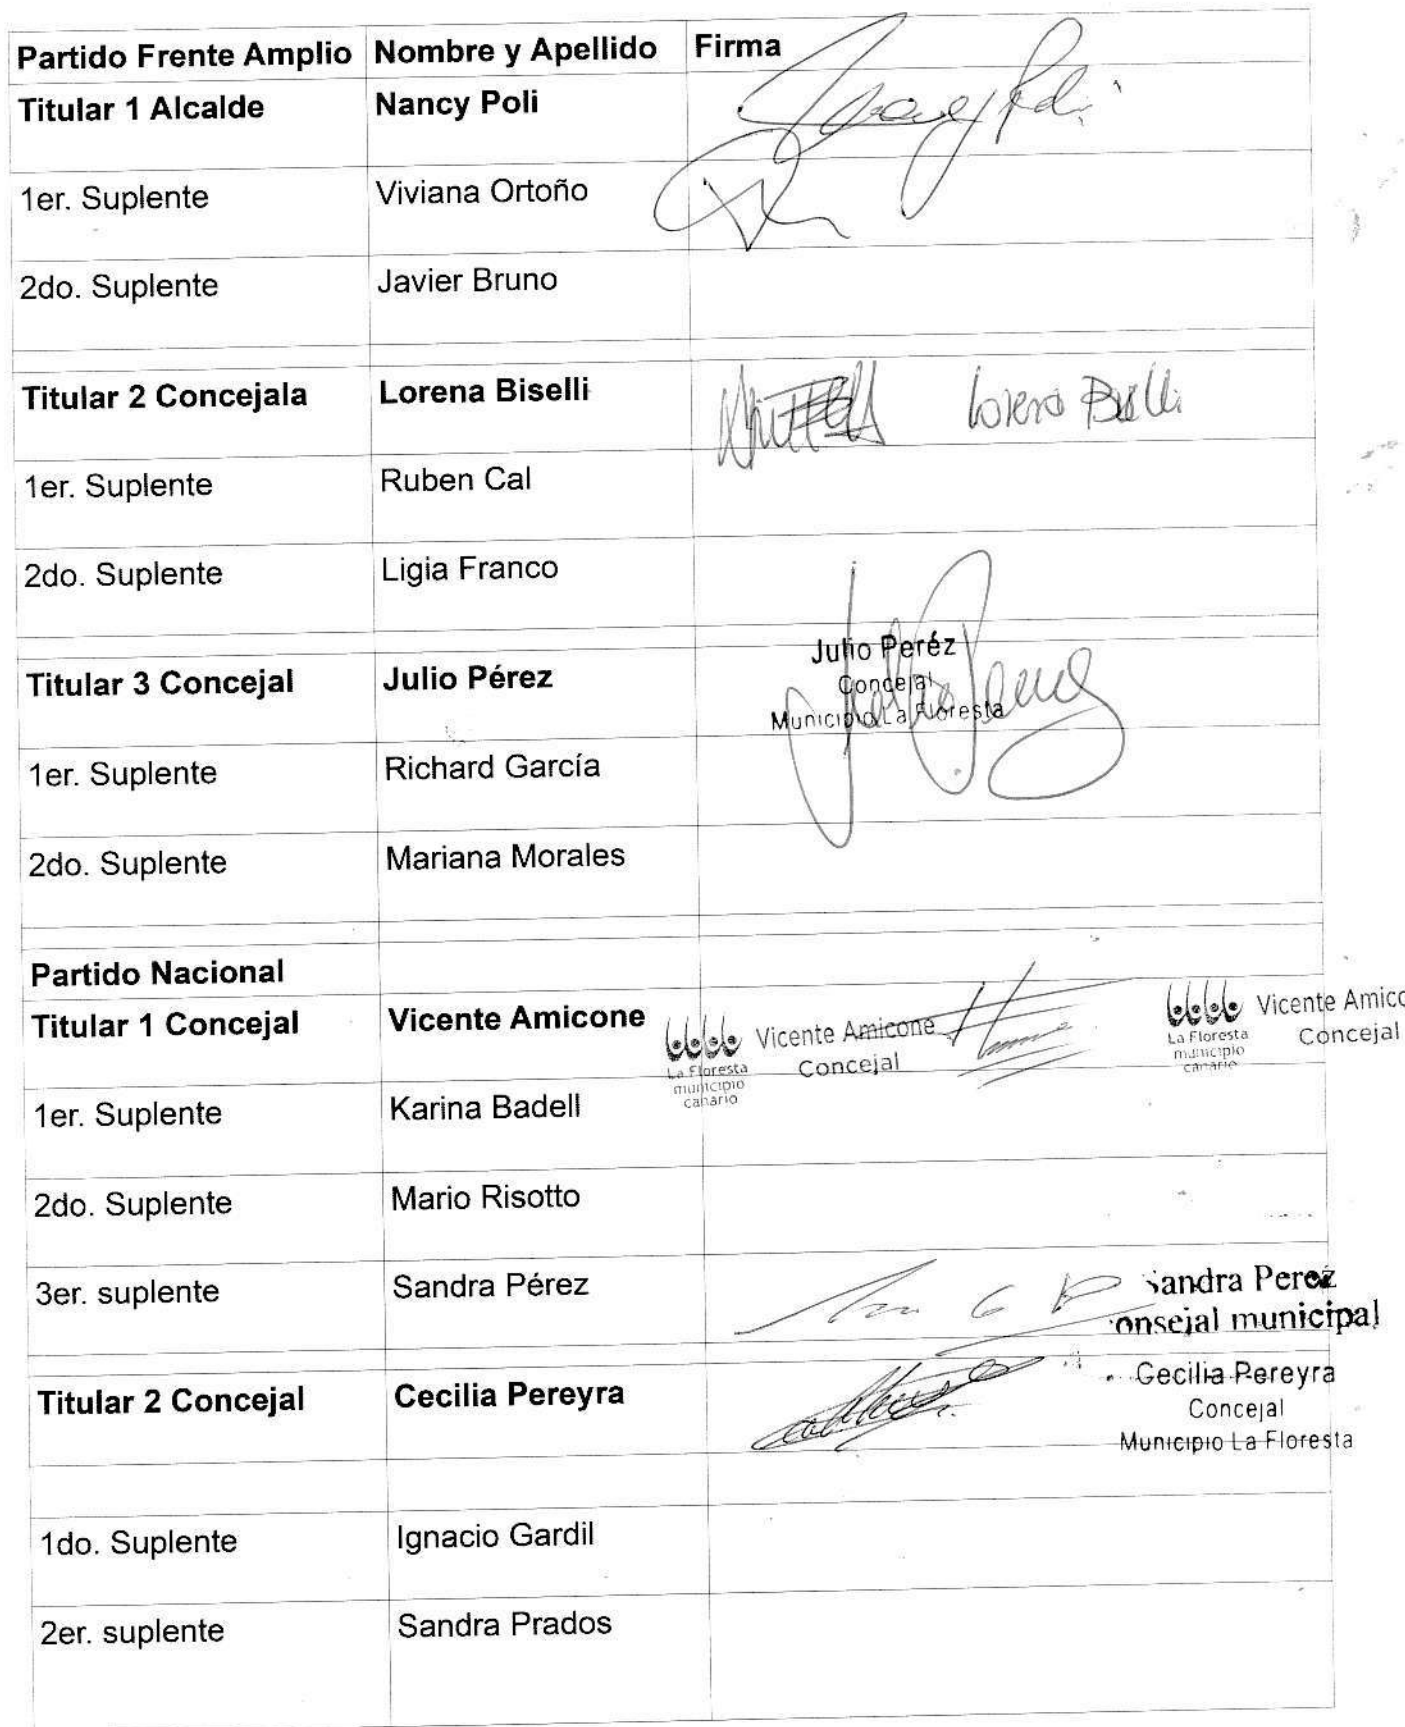 Partido Frente Amplio Nombre y Apellido Firma
Titular 1 Alcalde Nancy Poli
1er. Suplente Viviana Ortoño
2do. Suplente Javier Bruno
Titular 2 Concejala Lorena Biselli Lorena Biselli
1er. Suplente Ruben Cal
2do. Suplente Ligia Franco
Julio Peréz
Titular 3 Concejal Julio Pérez Concejal
Municipio La Floresta
1er. Suplente Richard García
2do. Suplente Mariana Morales
Partido Nacional
Titular 1 Concejal Vicente Amicone
Vicente Amicone
Concejal
La Floresta
municipio
canario
Vicente Amico
Concejal
La Floresta
municipio
canario
1er. Suplente Karina Badell
2do. Suplente Mario Risotto
3er. suplente Sandra Pérez
Sandra Perez
onsejal municipal
Titular 2 Concejal Cecilia Pereyra
Cecilia Pereyra
Concejal
Municipio La Floresta
1do. Suplente Ignacio Gardil
2er. suplente Sandra Prados